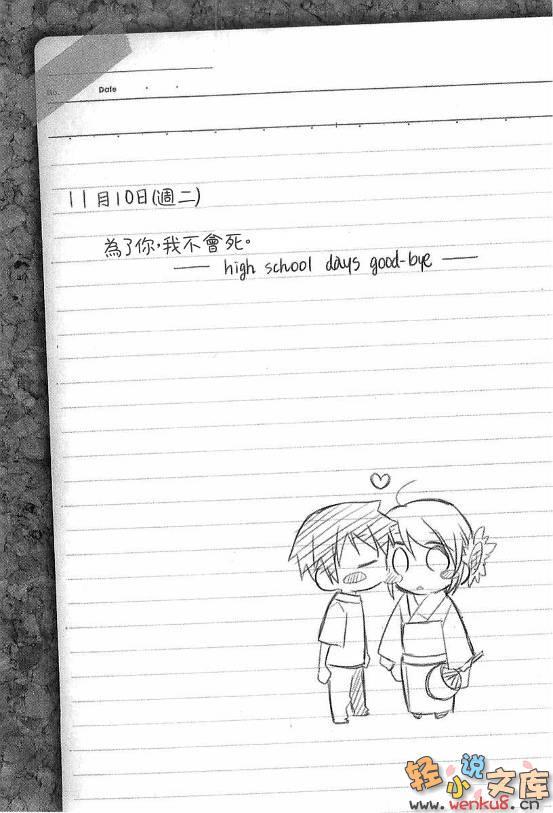 No.
Date
11月10日(週二)
為了你，我不會死。
—— high school days good-bye ——
轻小说文库
www.wenku8.cn